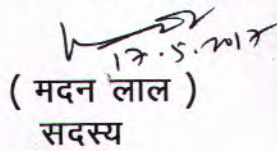 17.5.2017
( मदन लाल )
सदस्य